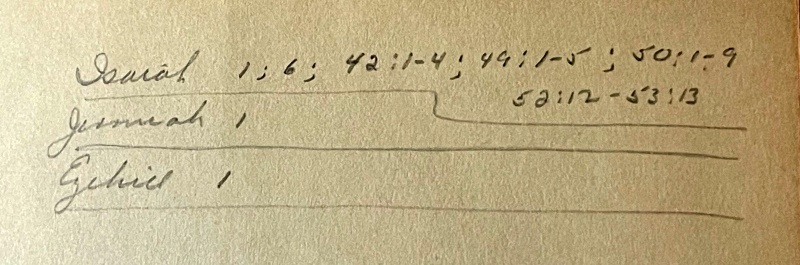 Isaiah 1; 6; 42:1-4; 49:1-5; 50:1-9
52:12-53:13
Jeremiah 1
Ezekiel 1